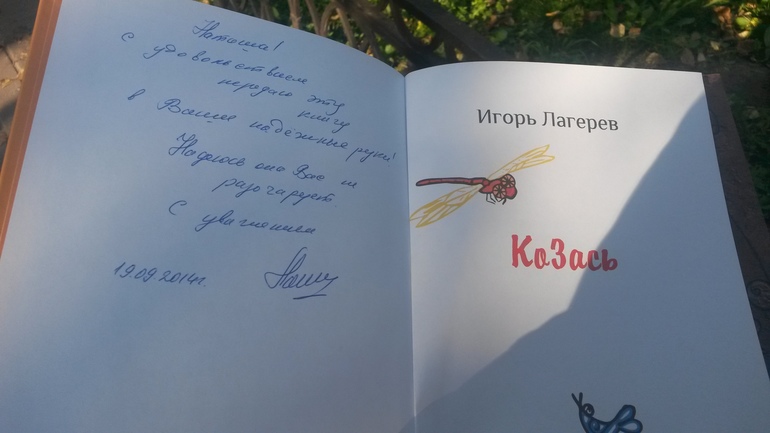 Наташа!
с удовольствием
передаю эту
книгу
в Ваши надежные руки!
Надеюсь она Вас не
разочарует.
С уважением
19.09.2014г.
Игорь Лагерев
КоЗась